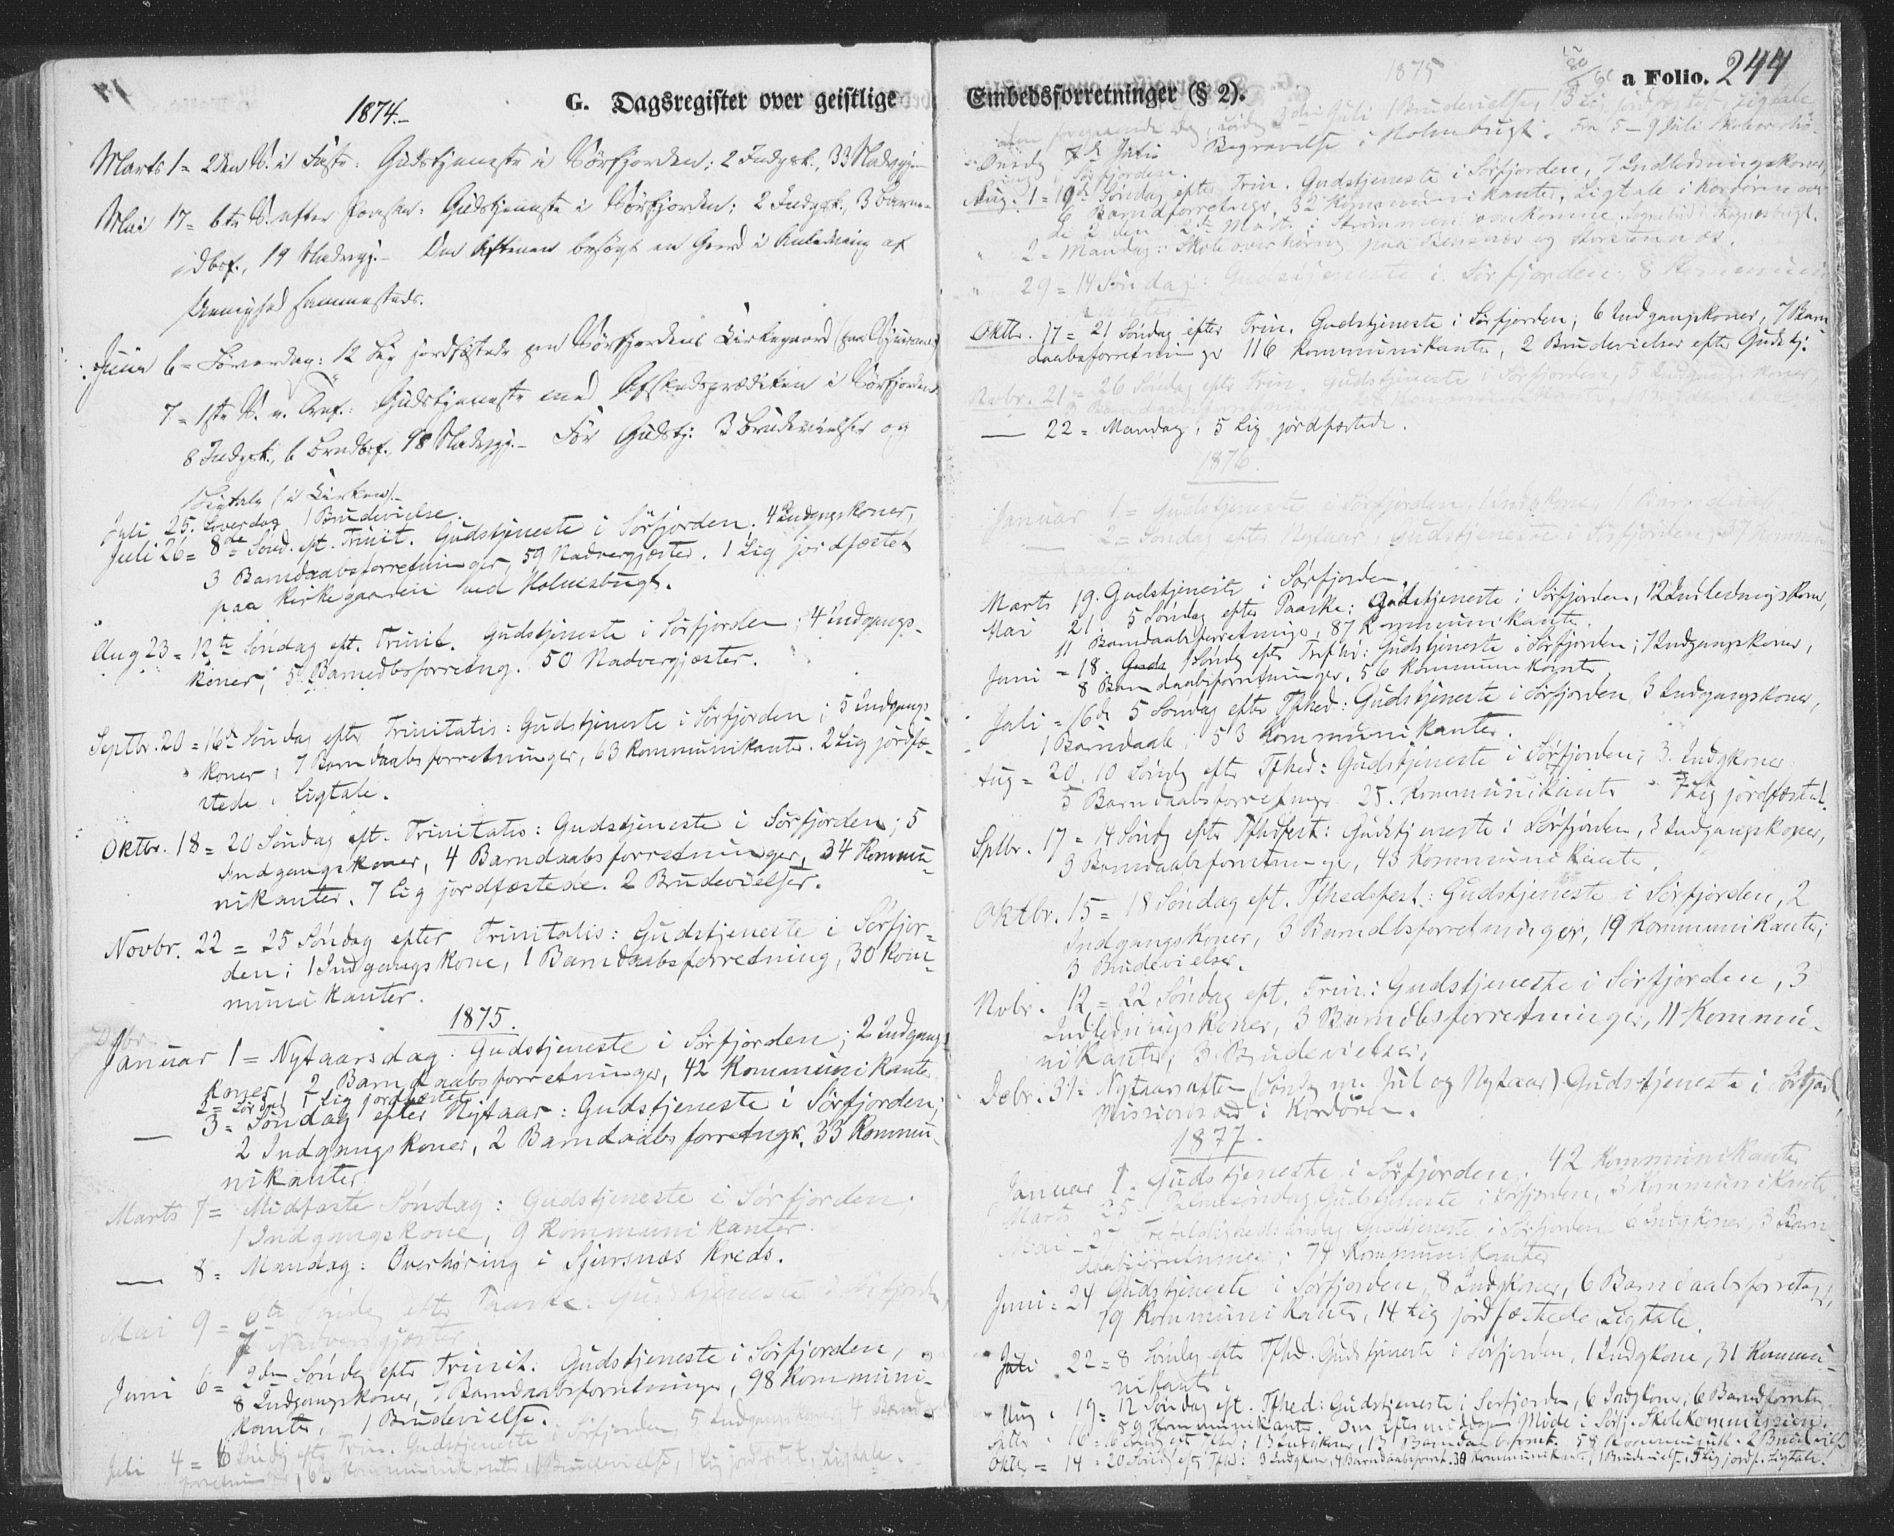 G. Dagsregister over geistlige
1874.-
Marts 1 = 2den S. i Faste: Gudstjeneste i Sörfjorden; 2 Indgsk., 33 Nadvgj.
Mai 17 = 6te S. efter Paaske: Gudstjeneste i Sörfjorden; 2 Indgsk., 3 Barne-
dbsf., 19 Nadvgj. - Om Aftenen besøgt en Gaard i Anledning af
Uenighed sammesteds.
Juni 6 = Löverdag: 12 Lig jordfæstede paa Sörfjordens Kirkegaard
7 = 1ste S. e. Tref.: Gudstjeneste med Afskedsprædiken i Sörfjorden
8 Indgsk., 6 Brndbsf., 98 Nadvgj. - Før Gudstj. 3 Brudevielser og
1 Ligtale (i Kirken).-
Juli 25. Löverdag 1 Brudevielse.
Juli 26 = 8de Sönd. eft. Trinit. Gudstjeneste i Sörfjorden. 4 Indgngskoner,
3 Barndaabsforretninger, 59 Nadvergjæster. 1 Lig jordfæstet
paa Kirkegaarden ved Holmebugt.
Aug 23 = 12te Söndag eft. Trinit. Gudstjeneste i Sörfjorden; 4 Indgangs-
koner; 5 Barnedbsforretng. 50 Nadvergjæster.
Septbr. 20 = 16de Söndag efter Trinitatis: Gudstjeneste i Sörfjorden; 5 Indgangs-
koner, 7 Barndaabsforretninger, 63 Kommunikanter. 2 Lig jordfæ-
stede, Ligtale.
Oktbr. 18 = 20 Söndag eft. Trinitatis: Gudstjeneste i Sörfjorden; 5
Indgangskoner, 4 Barndaabsforretninger, 34 Kommu-
nikanter. 7 Lig jordfæstede. 2 Brudevielser.
Novbr. 22 = 25 Söndag efter Trinitatis: Gudstjeneste i Sörfjor-
den; 1 Indgangskone, 1 Barndaabsforretning, 30 Kom-
munikanter.
1875.
Januar 1 = Nytaarsdag: Gudstjeneste i Sörfjorden; 2 Indgangs-
koner, 2 Barndaabsforretninger, 42 Kommunikanter
2 = Lördag 1 Lig jordfæstet
— 3 = Söndag efter Nytaar: Gudstjeneste i Sörfjorden;
2 Indgangskoner, 2 Barndaabsforretngr. 33 Kommu-
nikanter.
Marts 7 = Midfaste Söndag: Gudstjeneste i Sörfjorden;
1 Indgangskone, 9 Kommunikanter.
— 8 = Mandag: Overhøring i Sjursnæs Kreds.
Mai 9 = 6te Söndg efter Paaske: Gudstjeneste i Sörfjorden,
7 Nadvergjæster.
Juni 6 = 2den Söndg efter Trinit. Gudstjeneste i Sörfjorden,
8 Indgangskoner, 7 Barndaabsforretninger, 98 Kommuni-
kanter, 1 Brudevielse.
Juli 4 = 6 Söndg efter Trin. Gudstjeneste i Sörfjorden, 5 Indgangskoner, 4 Barnd
forretninger, Kommunikanter, 1 Brudevielse, 1 Lig jordfæstet, Ligtale.
Embedsforretninger (§ 2).
a Folio. 244
1875
foregaaende Dag, Lördg 3die Juli 1 Brudevielse, 13 Lig jordfæstet, Ligtale
Onsdg 7de Juli Begravelse i Holmebugt. Fra 5-9 Juli Skoleoverhö-
ring i Sörfjorden.
Aug. 1 = 10de Söndag efter Trin. Gudstjeneste i Sörfjorden, 7 Indledningskoner,
6 Barndforretngr, 32 Kommunikanter, Ligtale i
" 2 = Mandag: Skoleoverhöring paa og
" 29 = 14 Söndag: Gudstjeneste i Sörfjorden; 8 Kommuni-
Oktbr. 17 = 21 Söndag efter Trin. Gudstjeneste i Sörfjorden; 6 Indgangskoner, 7 Barn
daabsforretninger 116 Kommunikanter, 2 Brudevielser efter Gudstj:
Novbr. 21 = 26 Söndag efter Trin. Gudstjeneste i Sörfjorden, 5 Indgangskoner,
— 22 = Mandag, 5 Lig jordfæstede.
1876.
Januar 1 = Gudstjeneste i Sörfjorden,
— 2 = Söndag efter Nytaar Gudstjeneste i Sörfjorden, 37 Kommu
Marts 19. Gudstjeneste i Sörfjorden.
Mai 21 5 Söndag efter Paaske: Gudstjeneste i Sörfjorden, 12 Indledningskoner,
11 Barndaabsforretninger, 87 Kommunikanter.
Juni = 18. 1 Söndg efter Trefhd: Gudstjeneste i Sörfjorden; 7 Indgangskoner,
8 Barndaabsforretninger, 56 Kommunikanter
Juli = 16de 5 Söndag efter Tfhed: Gudstjeneste i Sörfjorden 3 Indgangskoner,
1 Barndaab, 53 Kommunikanter.
Aug = 20. 10 Söndg efter Tfhed: Gudstjeneste i Sörfjorden; 3 Indgkoner
5 Barndaabsforretngr 25. Kommunikanter 7 Lig jordfæstet.
Sptbr. 17 = 14 Söndg efter Tfhdfest: Gudstjeneste i Sörfjorden, 3 Indgangskoner,
3 Barndaabsforretninger, 43 Kommunikanter.
Oktbr. 15 = 18 Söndag eft. Tfhedsfest: Gudstjeneste i Sörfjorden, 2
Indgangskoner, 3 Barndbsforretninger, 19 Kommunikanter;
3 Brudevielser.
Nvbr. 12 = 22 Söndag eft. Trin: Gudstjeneste i Sörfjorden, 3
Indledningskoner, 3 Barndbsforretninger, 11 Kommu-
nikanter, 3 Brudevielser.
Decbr. 31 = Nytaarsaften (Söndg m. Jul og Nytaar) Gudstjeneste i Sörfjord
i
1877.
Januar 1. Gudstjeneste i Sörfjorden. 42 Kommunikanter
Marts 25. Palmesöndag Gudstjeneste i Sörfjorden, 3 Kommunikanter
Mai 27 Trefoldighedssöndag Gudstjeneste i Sörfjorden 6 Indgkoner, 3 Barn-
daabsforretninger; 74 Kommunikanter
Juni = 24 Gudstjeneste i Sörfjorden, 8 Indgkoner, 6 Barndaabsforretngr,
79 Kommunikanter, 14 Lig jordfæstede, Ligtale.
Juli 22 = 8 Söndg efter Tfhd. Gudstjeneste i Sörfjorden, 1 Indgkone, 31 Kommu-
nikanter.
Aug. 19 = 12 Söndag eft. Tfhed: Gudstjeneste i Sörfjorden, 6 Indgkoner, 6 Barndfrretn
89 Kommunikanter. Om Eftermiddagen Möde i Sörfj. Skolekommission.
16 = 16 Söndg eft Tfhd: 13 Indgkoner, 13 Barndaabsforret. 58 Kommunik. 2 Brudeviels
Oktbr = 14 = 20 Sönd efter Tfhd: 3 Indgkoner, 4 Barndaabsforret. 30 Kommunikan. 1 Brudevielse, 5 Lig jordf. Ligtale.